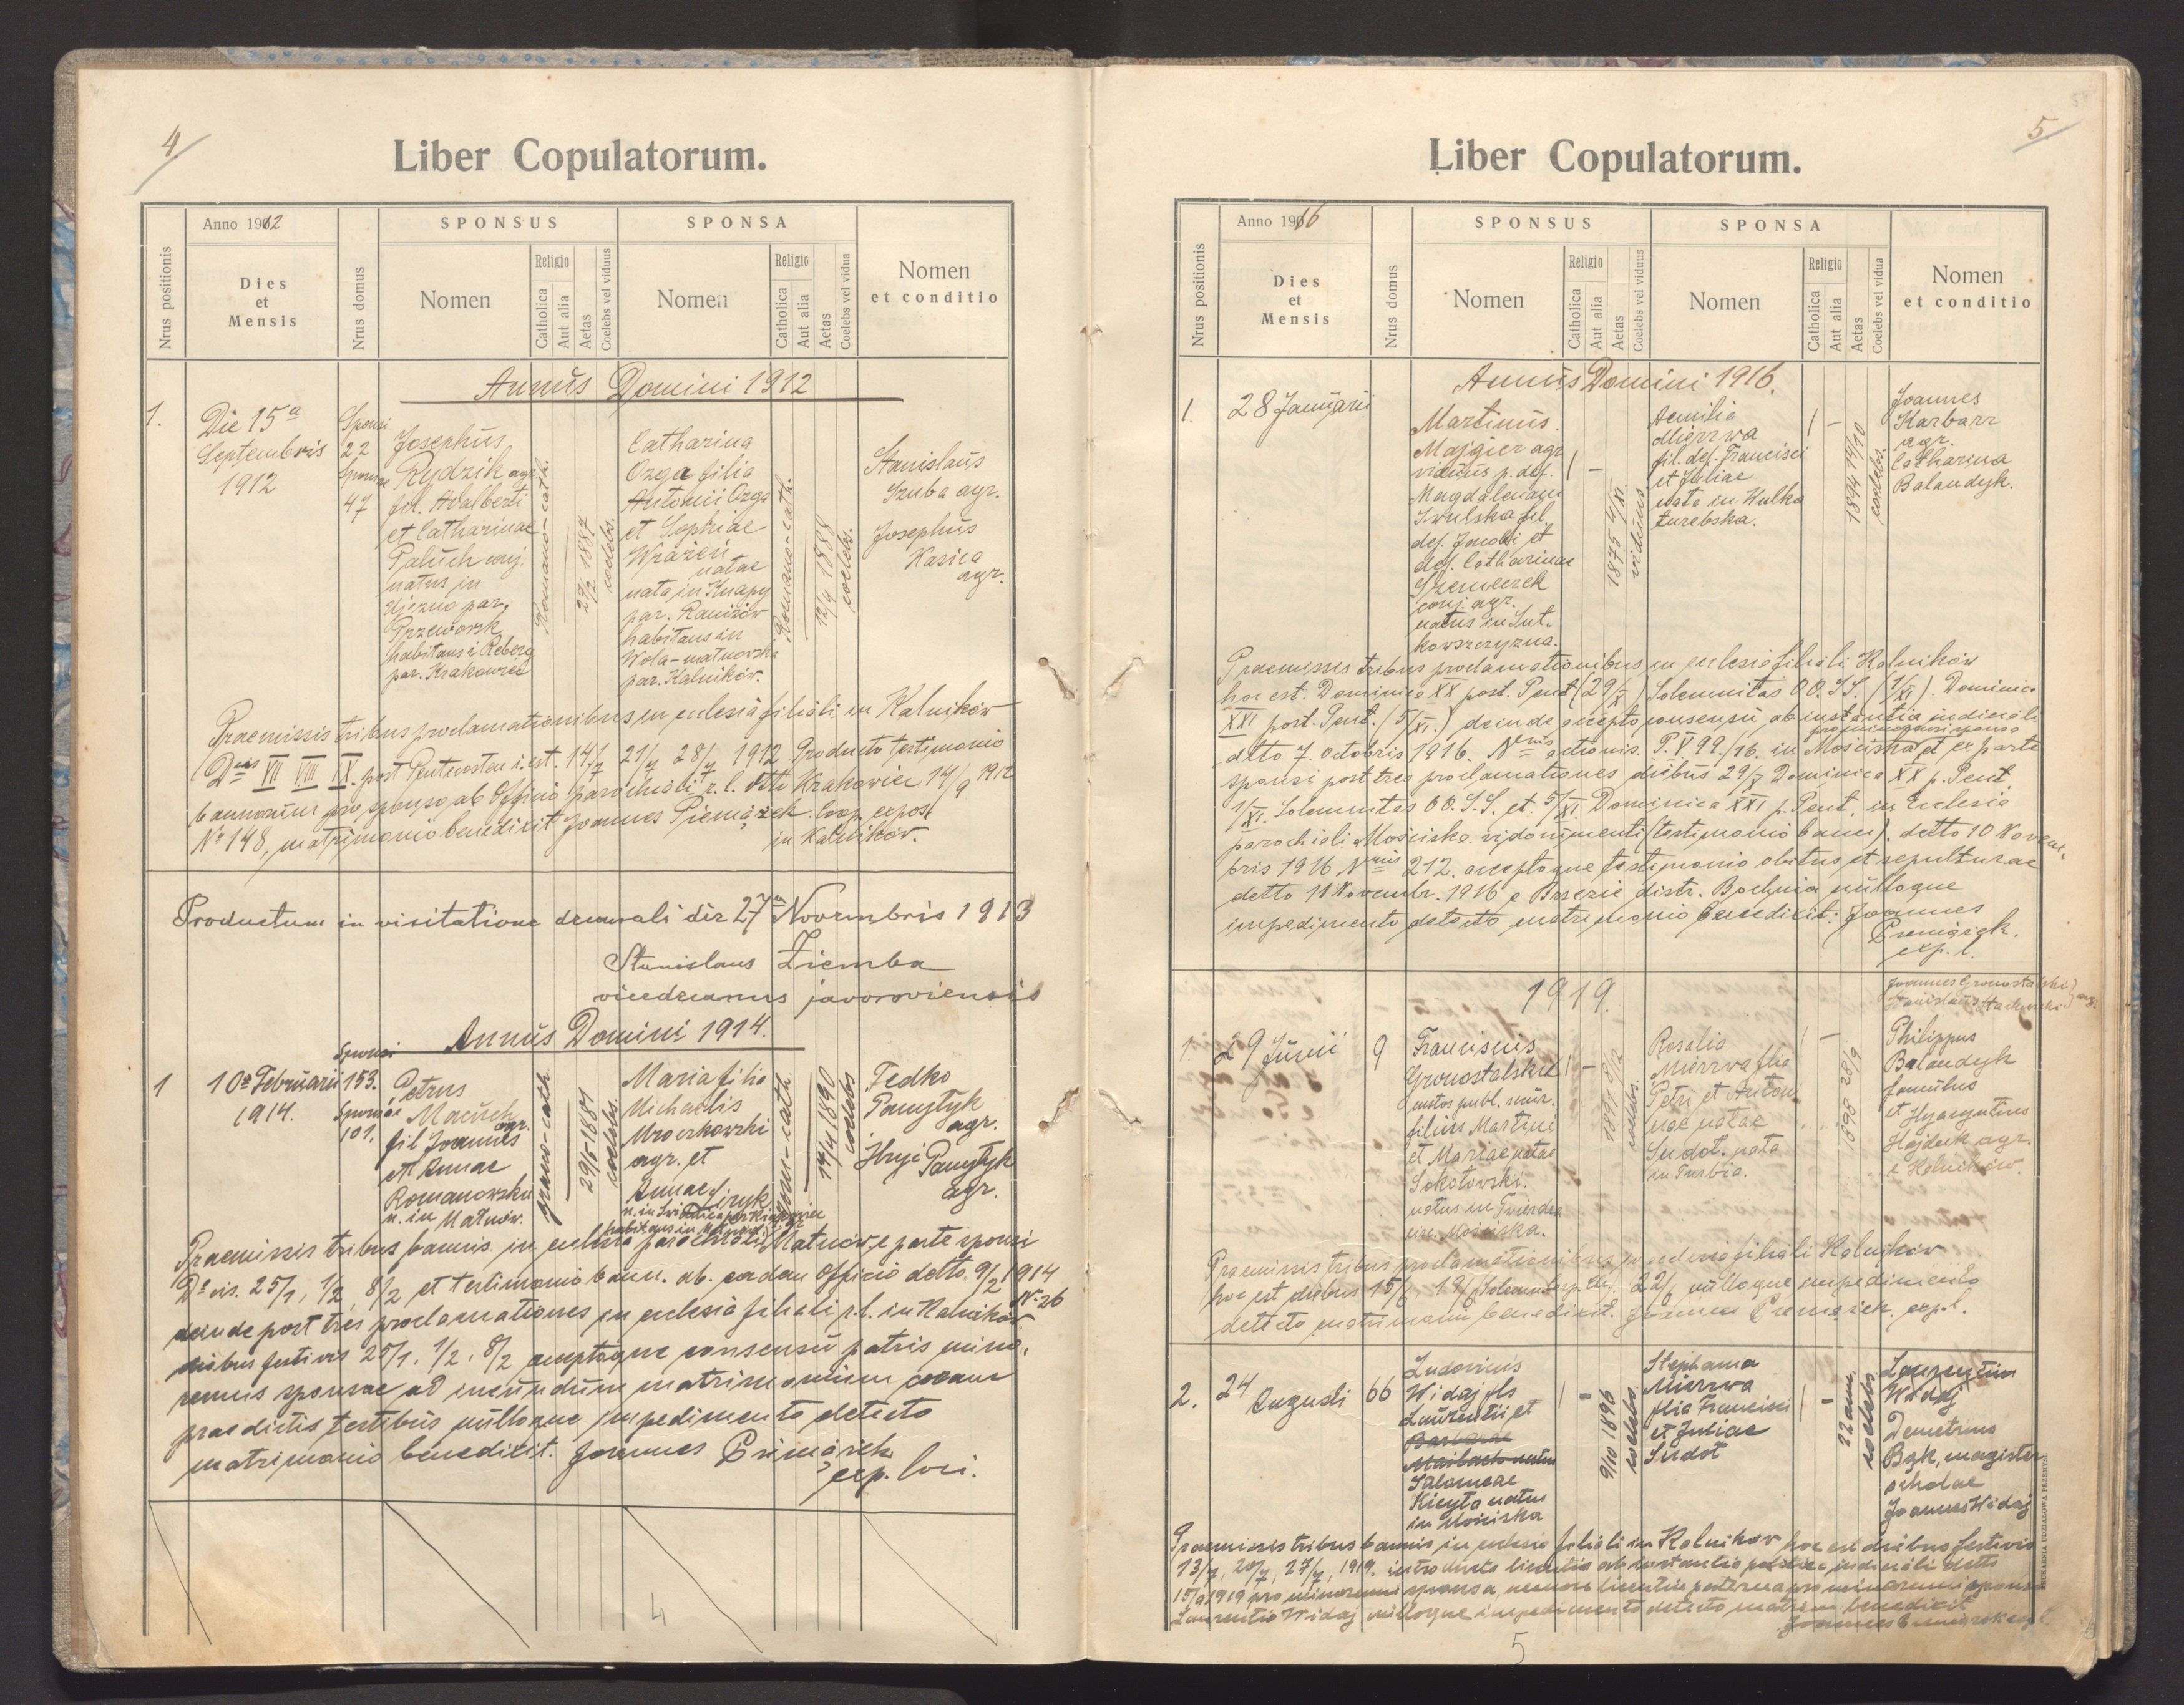 4
Liber Copulatorum.
Nrus positionis
Anno 1912
Dies
et
Mensis
Nrus domus
SPONSUS
Nomen
Religio
Catholica
Aut alia
Aetas
Coelebs vel viduus
SPONSA
Nomen
Religio
Catholica
Aut alia
Aetas
Coelebs vel vidua
Nomen
et conditio
Annus Domini 1912
1.
Die 15a
Septembris
1912
Sponsi
22
Sponsae
47
Josephus
Rydzik agr.
fil. Adalberti
et Catharinae
Paluch conj.
natus in
par.
Przeworsk
habitans i Reberg
par. Krakowiec
Romano-cath.
27/2 1887
coelebs.
Catharina
Ozga filia
Antonii Ozga
et Sophiae
Wrazen
natae
nata in Knapy
par. Raniżów
habitans in
Wola-matnowska
par. Kalników.
Romano-cath.
12/9 1888
coelebs.
Stanislaus
Szuba agr.
Josephus
Kasica
agr.
Praemissis tribus proclamationibus in ecclesia filiali in Kalników
Dnis VII VIII IX. post Pentecosten i. est. 14/7 21/7 28/7 1912 Producto testimonio
bannorum pro sponso ab Officio parochiali r. l. dtto Krakowiec 14/9 1912
No 148, matrimonio benedixit Joannes Pieniążek. Coop. expos
in Kalników.
Productum in visitatione decanali die 27a Novembris 1913
Stanislaus Ziemba
vicedecanus javoroviensis
Annus Domini 1914.
1
10a Februarii
1914.
Sponsi
153.
Sponsae
101.
Petrus
Maciuch
agr.
fil Joannis
et Annae
Romanowska
n. in Matnów.
graeco-cath
29/6 1881
coelebs.
Maria filia
Michaelis
Mroczkowski
agr. et
Annae
rom-cath
14/4 1890
coelebs
Fedko
Pamytyk
agr.
Hryc Pamytyk
agr.
Praemissis tribus bannis in ecclesia parochiali Matnów, e parte sponsi
25/1, 1/2, 8/2 et testimonio bann. ab. eodem Officio detto. 9/2 1914
No 26
deinde post tres proclamationes in ecclesia filiali r.l. in Kalników
diebus festivis 25/1, 1/2, 8/2 acceptoque consensu patris mino-
rennis sponsae ad ineundum matrimonium coram
praedictis testibus nulloque impedimento detecto
matrimonio benedixit. Joannes Pieniążek
exp. loci.
4
5
Liber Copulatorum.
Nrus positionis
Anno 1916
Dies
et
Mensis
Nrus domus
SPONSUS
Nomen
Religio
Catholica
Aut alia
Aetas
Coelebs vel viduus
SPONSA
Nomen
Religio
Catholica
Aut alia
Aetas
Coelebs vel vidua
Nomen
et conditio
Annus Domini 1916.
1.
28 Januarii
Martinus
Majgier agr
viduus p. def.
Magdalenam
fil.
def. Jacobi et
def. Catharinae
conj. agr.
natus in Sut-
kowszczyzna.
1875 4/XI.
viduus
Aemilia
Mierzwa
fil. def. Francisci
et Juliae
nata in Kulka
turebska.
1894 14/10
coelebs.
Joannes
Karbarz
agr.
Catharina
Balandyk.
Praemissis tribus proclamationibus in ecclesia filiali Kalników
hoc est. Dominica XX post. Pent (29/X) Solemnitas O.O. S.S. (1/XI). Dominica
XXI post. Pent. (5/XI.) deinde accepto consensu ab instantia iudiciali
pro minorenni sponsa
dtto 7. octobris 1916. actionis. P. V 99/16. in Mościska et ex parte
sponsi post tres proclamationes diebus 29/X Dominica XX p. Pent
1/XI. Solemnitas O.O. S.S. et 5/XI Dominica XXI p. Pent. in Ecclesia
parochiali Mościska vidonimenti (testimonio bann). detto 10 Novem-
bris 1916 212. acceptoque testimonio obitus et sepulturae
detto 11 Novembr. 1916 e Brzezie distr. Bochnia nulloque
impedimento detecto matrimonio benedixit: Joannes
Pieniążek.
exp. l.
1919.
1.
29 Junii
9
Franciscus
Gronostalski
custos publ. secur.
filius Martini
et Mariae natae
Sokołowski.
natus in Twierdza
Mościska.
8/12
coelebs.
Rosalia
Mierzwa filia
Petri et Antoni-
nae natae
Sudoł. nata
in Turbia.
1898 28/9
Joannes Gronostalski
Stanislaus
agr.
Philippus
Balandyk
famulus
et Hyacyntus
Hajduk agr.
e Kalników.
Praemissis tribus proclamationibus in ecclesia filiali Kalników
hoc est diebus 15/6 19/6 22/6 nulloque impedimento
detecto matrimonio benedixit. Joannes Pieniążek. exp. l.
2.
24 Augusti
66
Ludovicus
Widaj fls
Laurentii et
Salomeae
Kicyta natus
in Mościska
9/10 1896
coelebs.
Stephania
Mierzwa
filia Francisci
et Juliae
Sudoł
22 ann.
coelebs
Laurentius
Widaj
Demetrius
Bąk, magister
scholae
Joannes Widaj
Praemissis tribus bannis in ecclesia filiali in Kalników hoc est diebus festivis
13/7, 20/7, 27/7, 1919. introducta licentia ab instantia iudiciali detto
15/8 1919 pro minorenni sponsa, necnon licentia paterna pro minorenni sponso
Laurentio Widaj nulloque impedimento detecto matrim benedixit
Joannes Pieniążek exp. l.
5